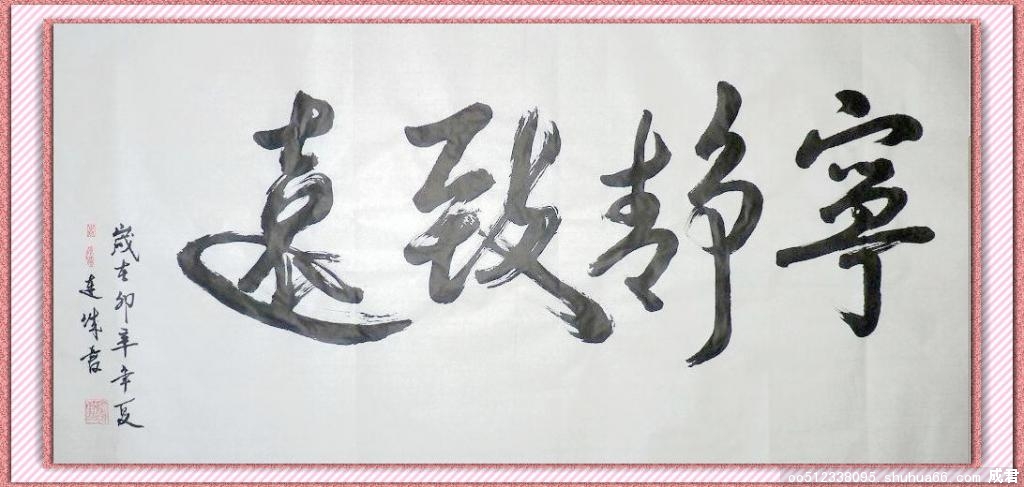 寧靜致遠
歲在卯辛年夏
連成書
oo512338095 shuhua66.com 成君